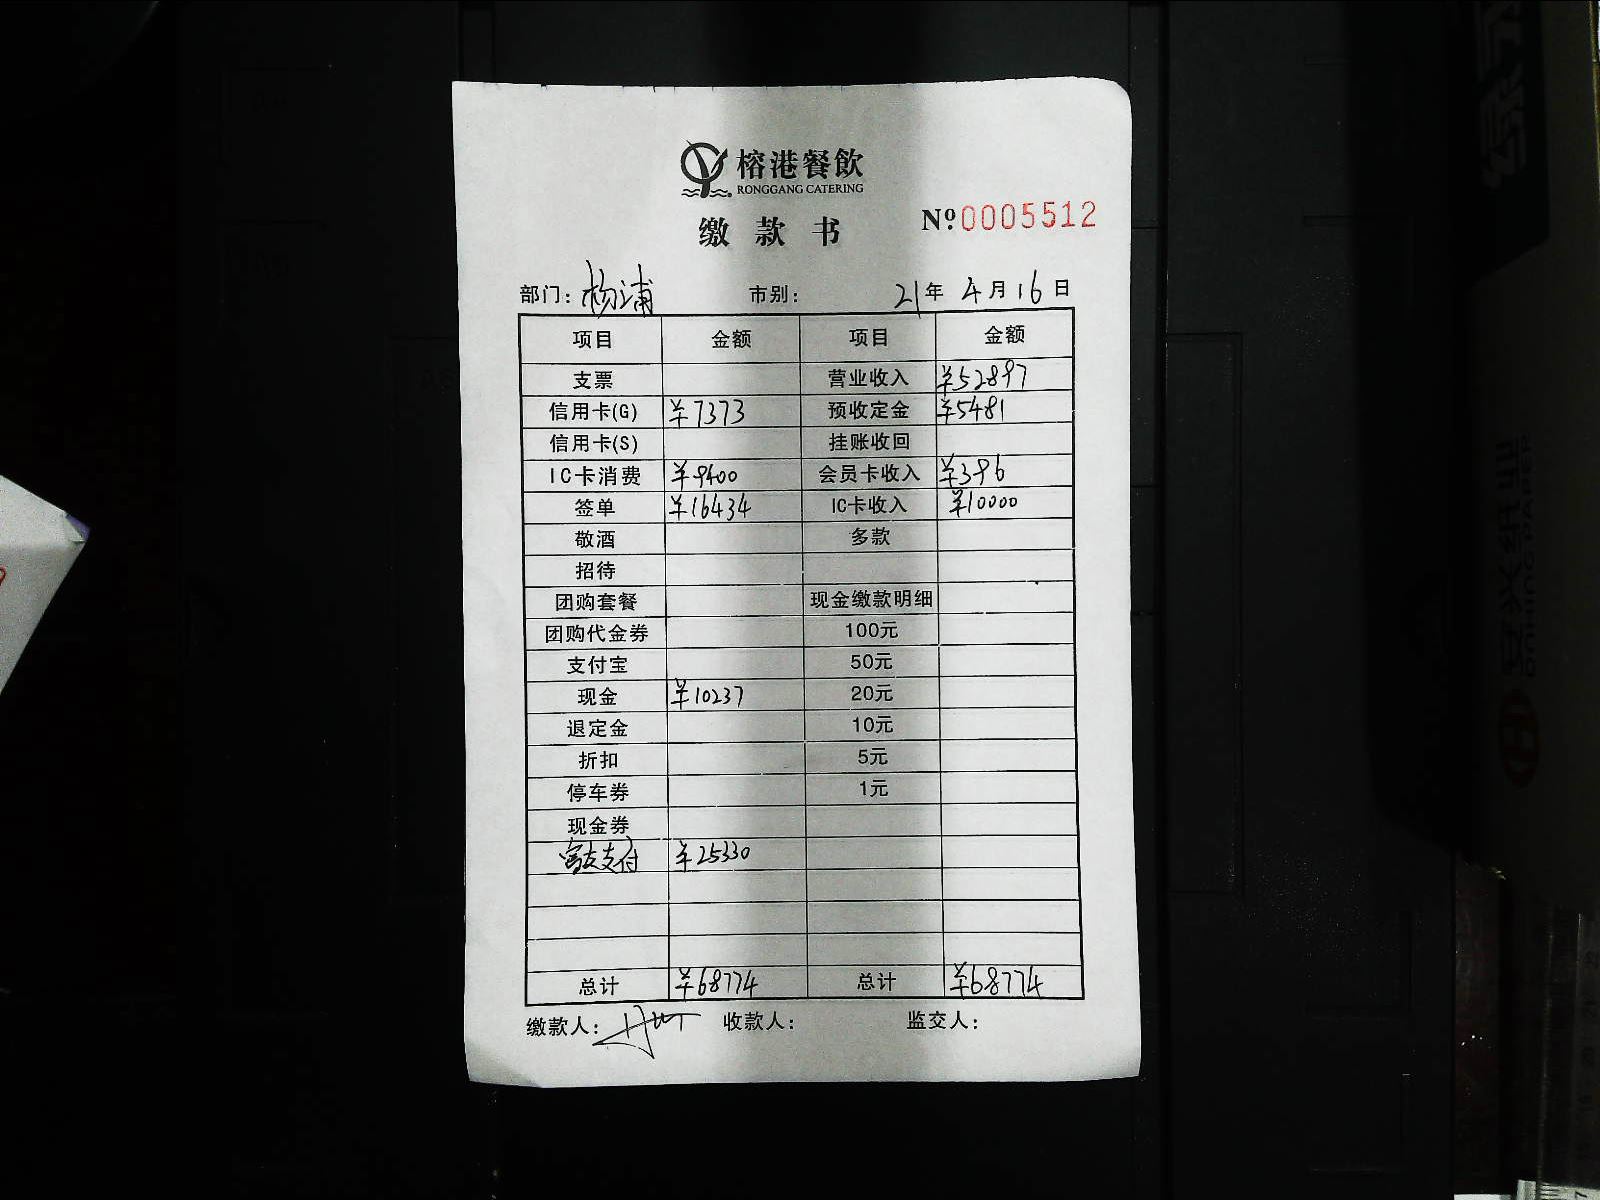 榕港餐飲
RONGGANG CATERING
缴款书
Nº 0005512
部门: 杨浦 市别: 21年 4月16日
项目 金额 项目 金额
支票 营业收入 ¥52897
信用卡(G) ¥7373 预收定金 ¥5481
信用卡(S) 挂账收回
IC卡消费 ¥9400 会员卡收入 ¥396
签单 ¥16434 IC卡收入 ¥10000
敬酒 多款
招待
团购套餐 现金缴款明细
团购代金券 100元
支付宝 50元
现金 ¥10237 20元
退定金 10元
折扣 5元
停车券 1元
现金券
富友支付 ¥25330
总计 ¥68774 总计 ¥68774
缴款人: 收款人: 监交人: